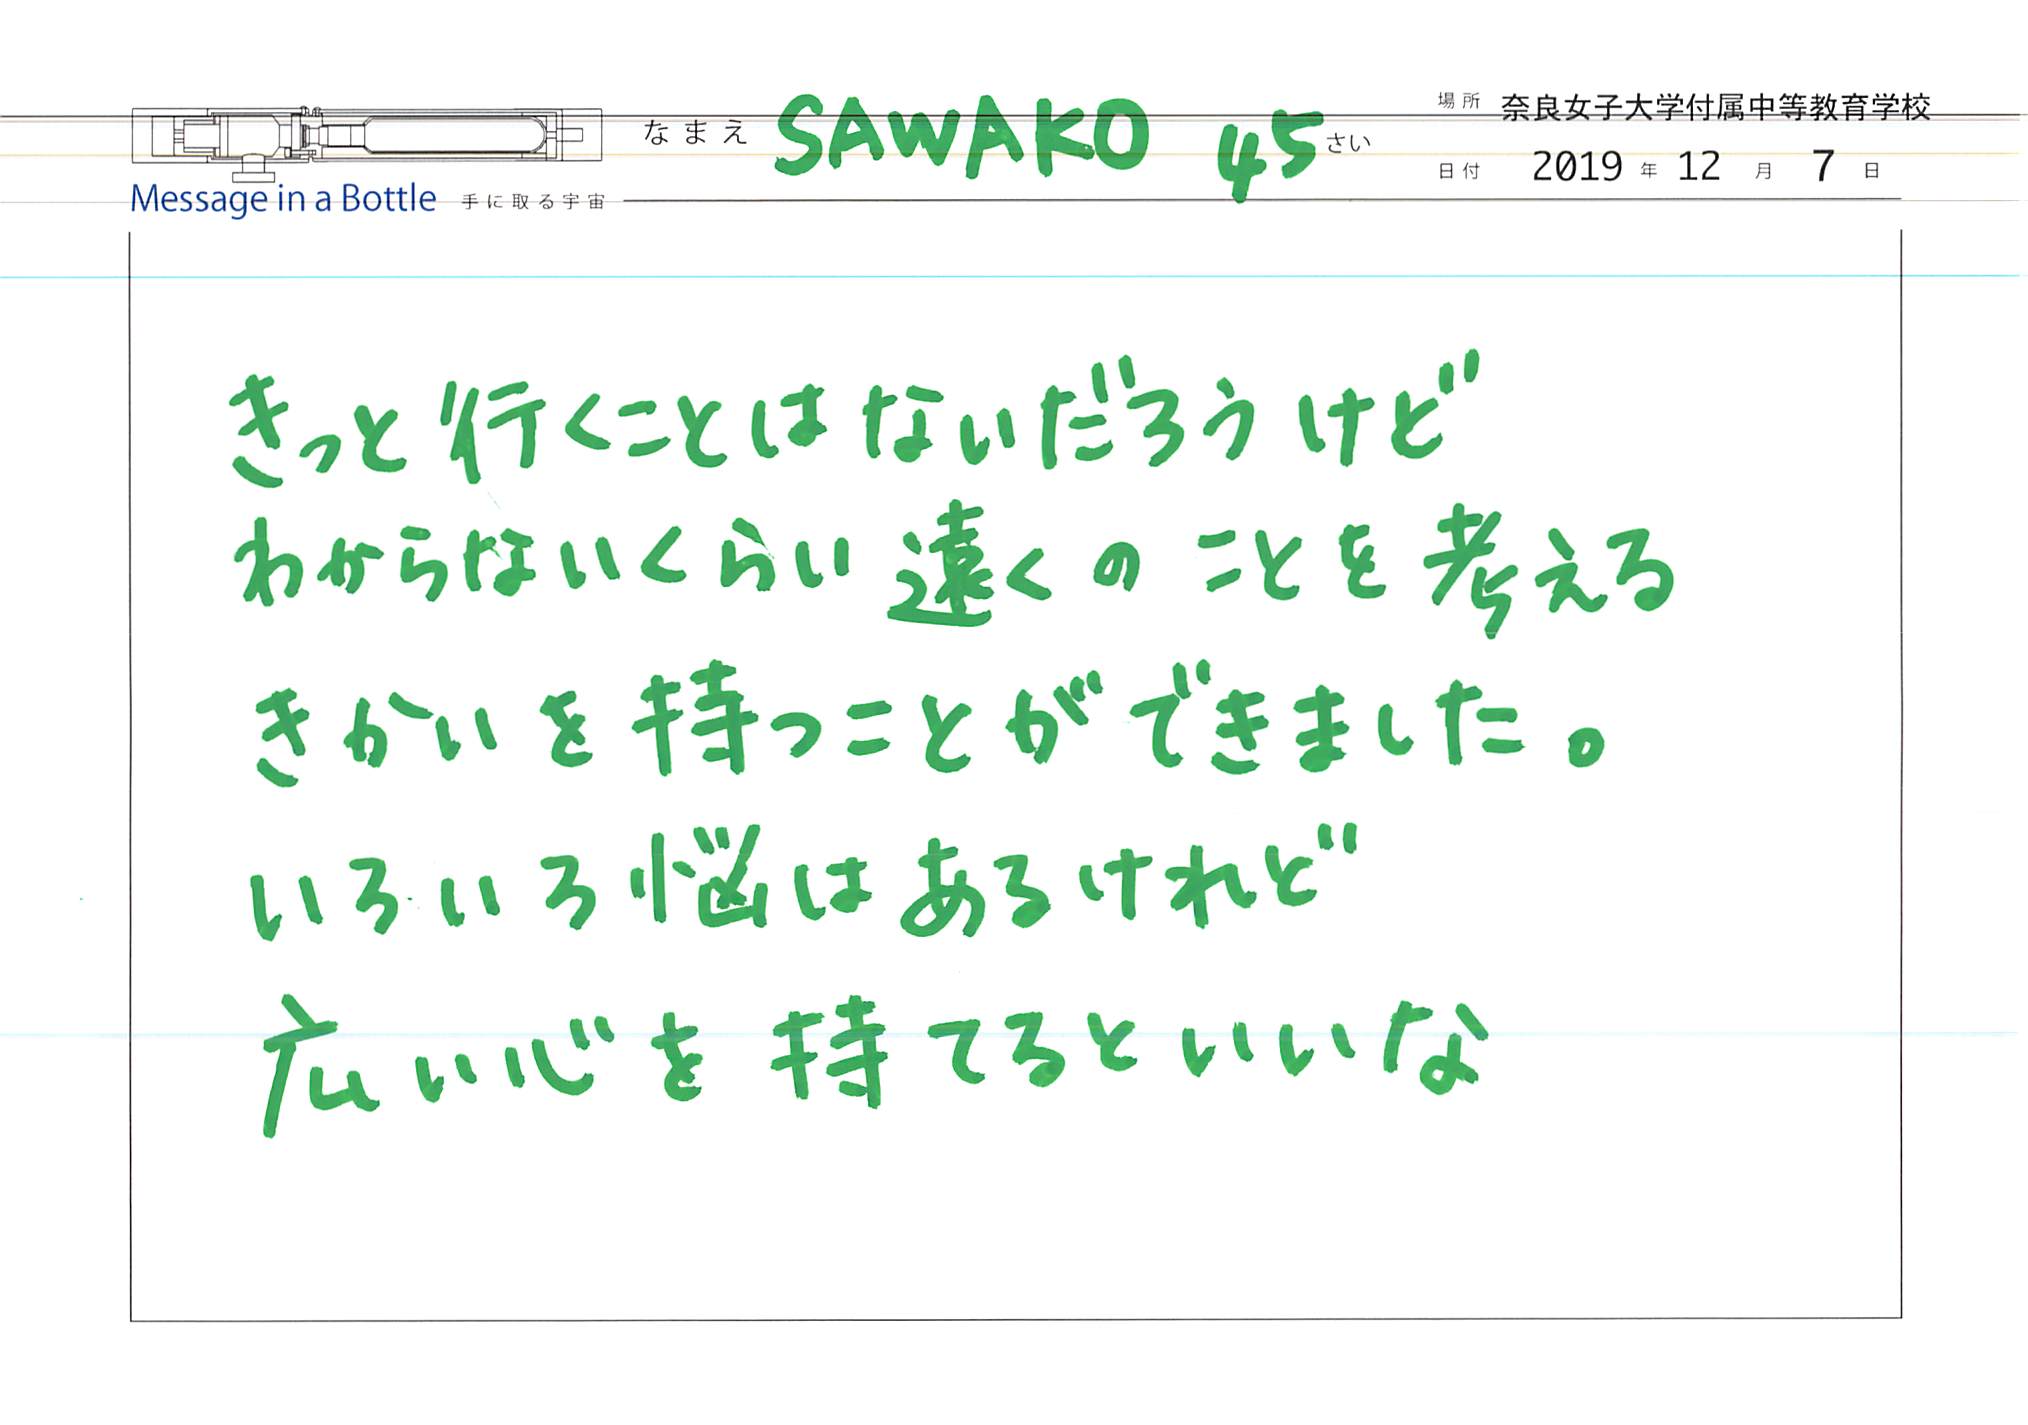 なまえ SAWAKO 45 さい
場所 奈良女子大学付属中等教育学校
日付 2019 年 12 月 7 日
Message in a Bottle 手に取る宇宙
きっと行くことはないだろうけど
わからないくらい遠くのことを考える
きかいを持つことができました。
いろいろ悩はあるけれど
広い心を持てるといいな